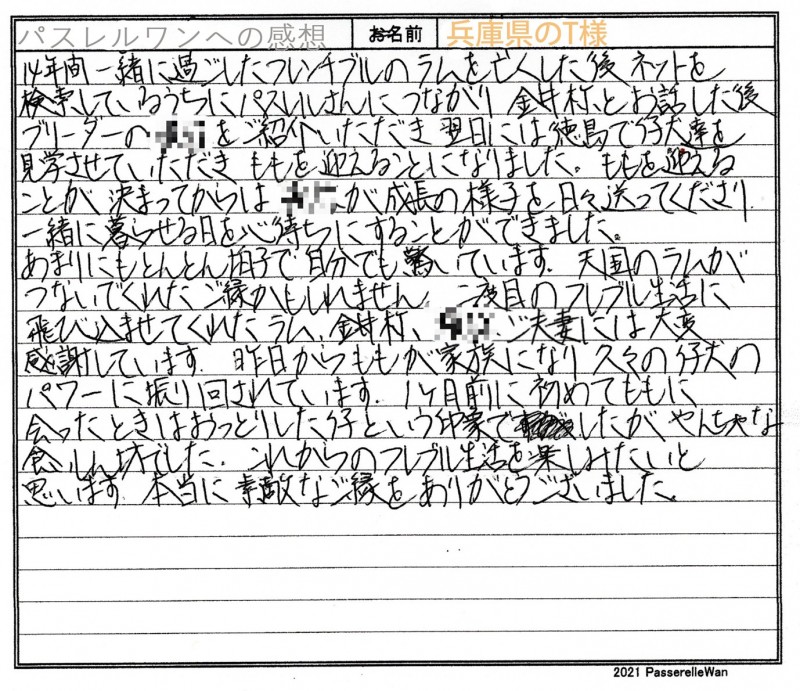 パスレルワンへの感想 お名前 兵庫県のT様
14年間一緒に過ごしたフレンチブルのラムを亡くした後 ネットを
検索しているうちにパスレルさんにつながり 金井様とお話した後
ブリーダーの をご紹介いただき 翌日には徳島で仔犬達を
見学させていただき ももを迎えることになりました。ももを迎える
ことが 決まってからは が成長の様子を日々送ってくださり
一緒に暮らせる日を心待ちにすることができました。
あまりにもとんとん拍子で自分でも驚いています. 天国のラムが
つないでくれたご縁かもしれません 二度目のフレブル生活に
飛び込ませてくれたラム、金井様、 ご夫妻には大変
感謝しています. 昨日からももが家族になり久々の仔犬の
パワーに振り回されています. 1ヶ月前に初めてももに
会ったときはおっとりした仔という印象で したが やんちゃな
食いしん坊でした. これからのフレブル生活を楽しみたいと
思います. 本当に素敵なご縁をありがとうございました。
2021 PasserelleWan